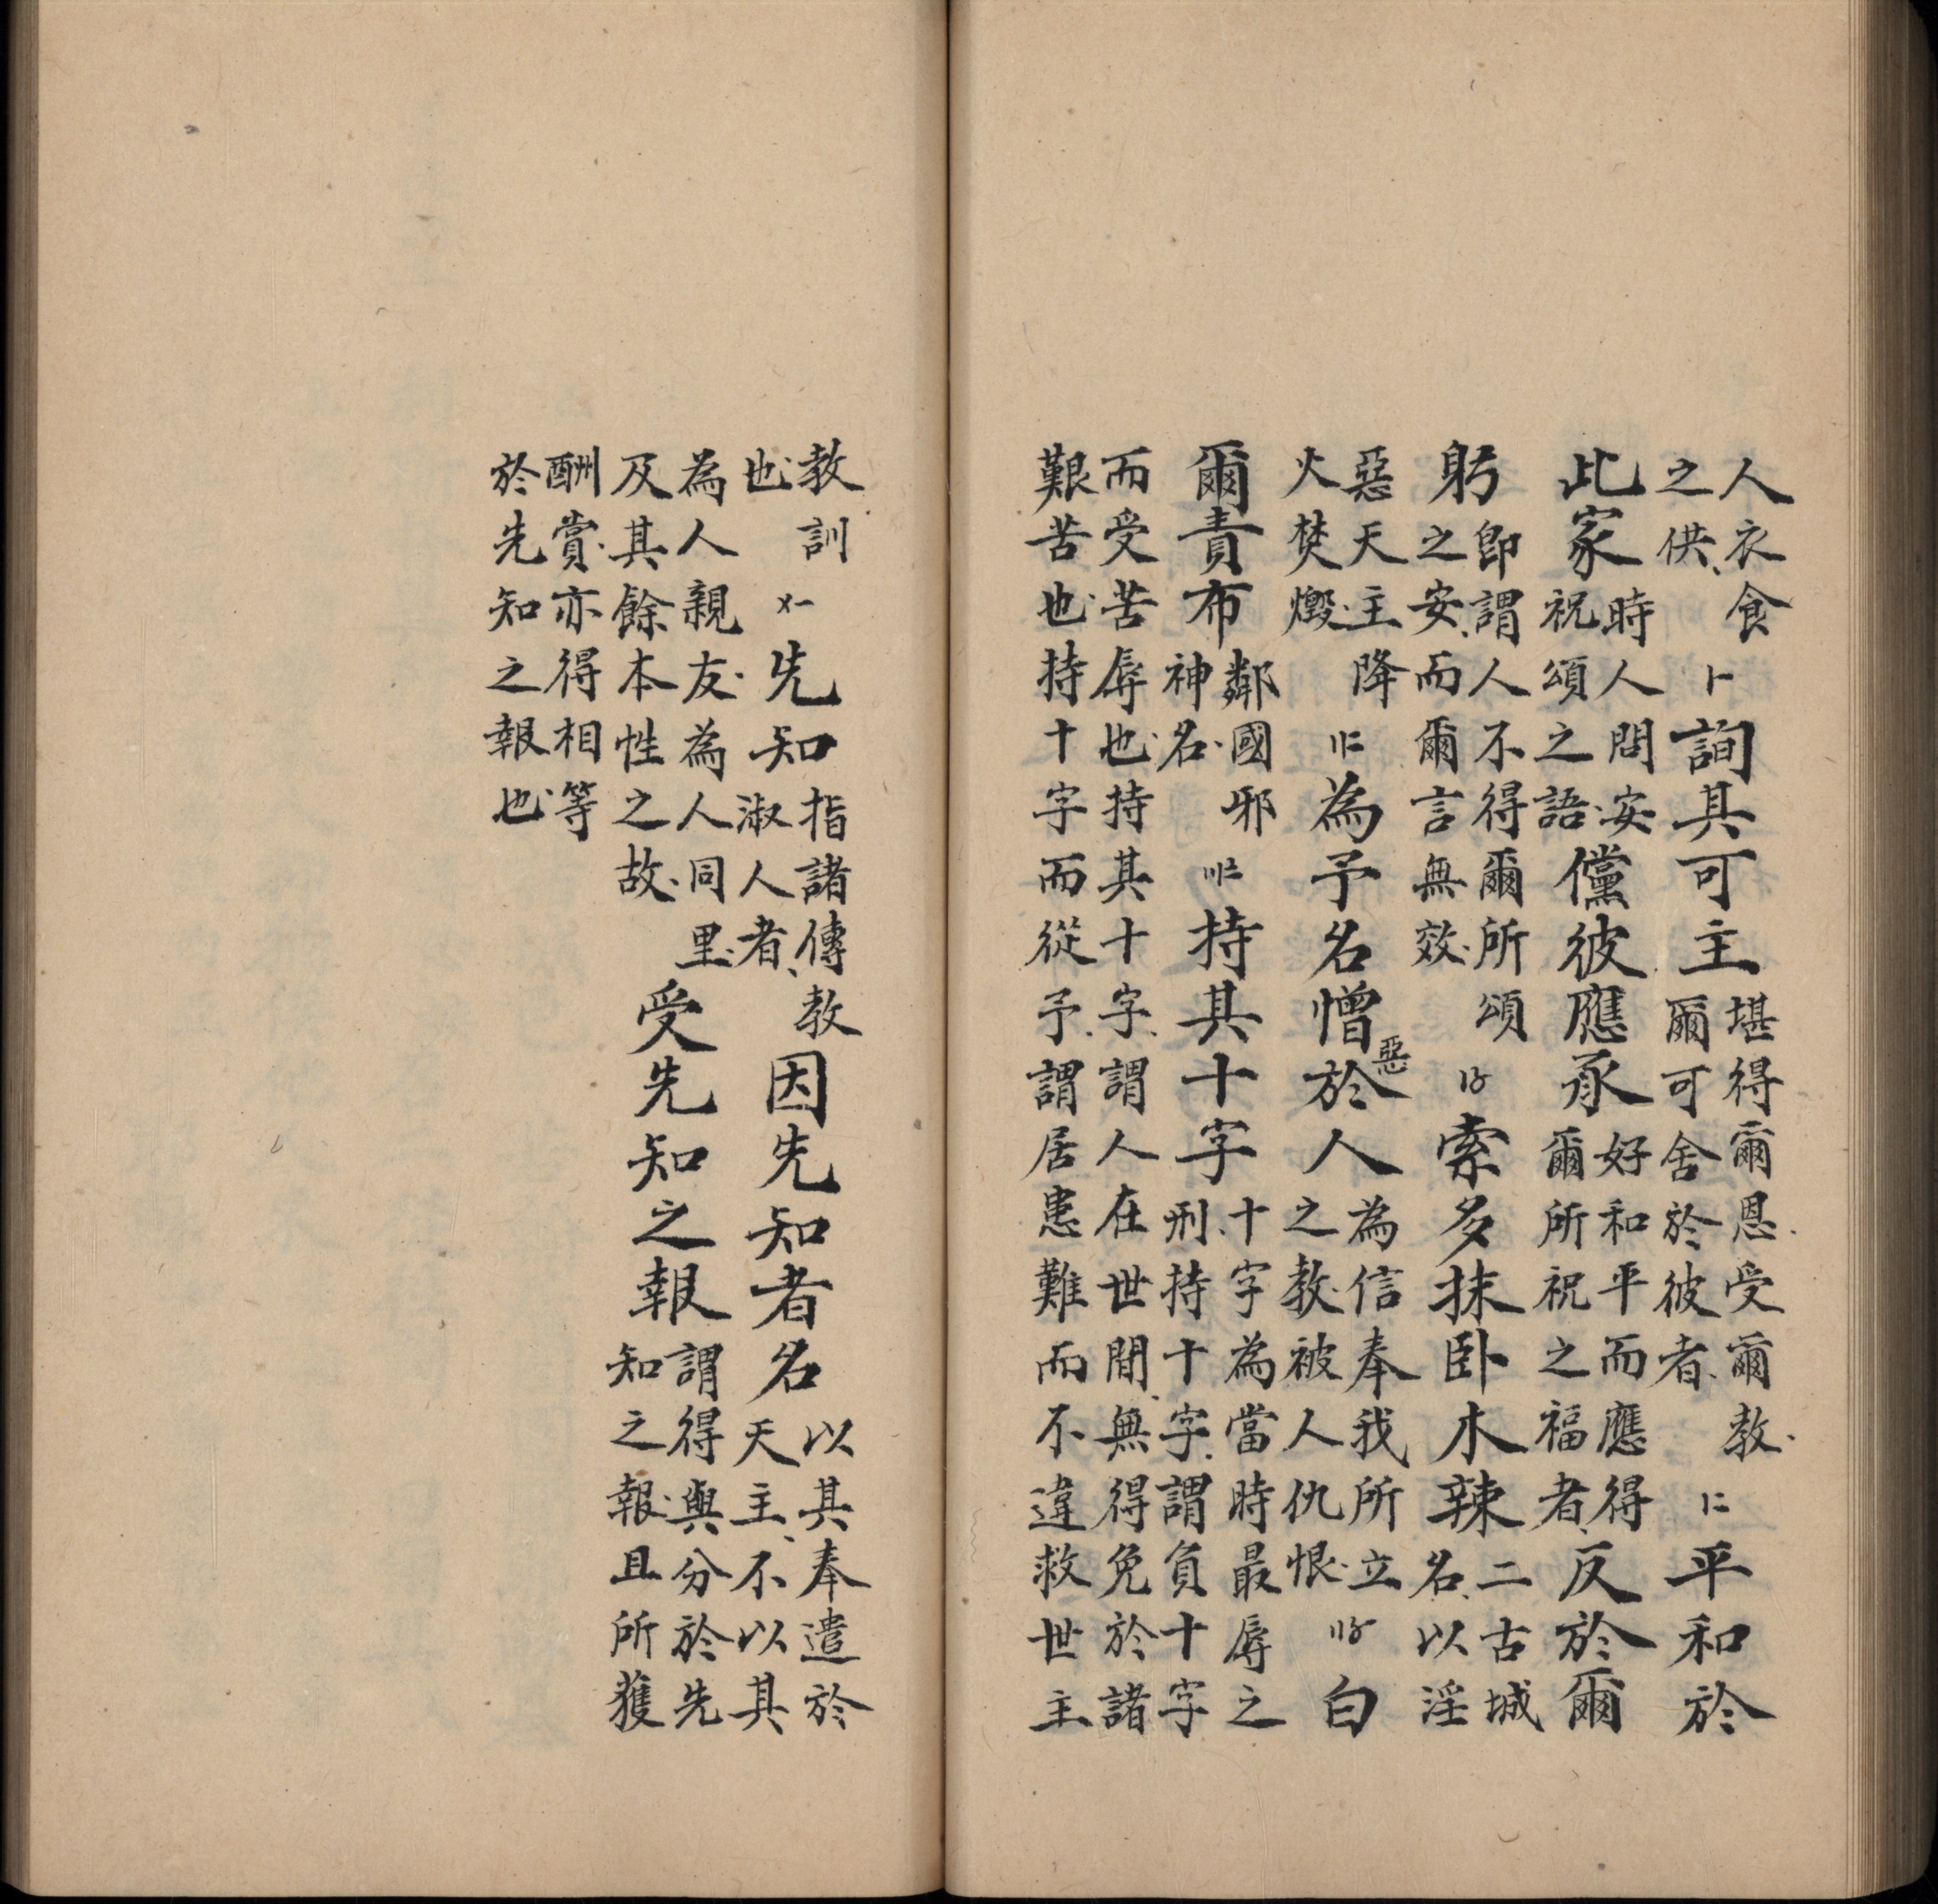 人衣食之供〡一詢其可主堪得爾恩受爾教爾可舍於彼者〡二平和於
此家時人問安祝頌之語儻彼應承好和平而應得爾所祝之福者反於爾
躬即謂人不得爾所頌之安而爾言無效〡〥索多抹卧木辣二古城名以淫
惡天主降火焚燬〢二為予名憎惡於人為信奉我所立之教被人仇恨〢〥白
爾責布鄰國邪神名〣二持其十字十字為當時最辱之刑持十字謂負十字
而受苦辱也持其十字謂人在世間無得免於諸
艱苦也持十字而從予謂居患難而不違救世主
教訓也〤一先知指諸傳教淑人者因先知者名以其奉遣於天主不以其
為人親友為人同里及其餘本性之故受先知之報謂得與分於先知之報且所獲
酬賞亦得相等
於先知之報也